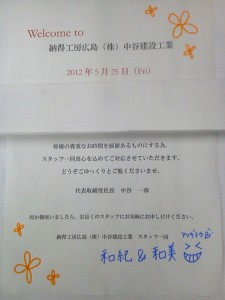 Welcome to
納得工房広島（株）中谷建設工業
2012年5月25日（Fri）
皆様の貴重なお時間を価値あるものにする為、
スタッフ一同真心を込めてご対応させていただきます。
どうぞごゆっくりとご覧くださいませ。
代表取締役社長　中谷　一彦
何か御座いましたら、お近くのスタッフにお気軽にお申し付けください。
納得工房広島（株）中谷建設工業　スタッフ一同
和紀 & 和美